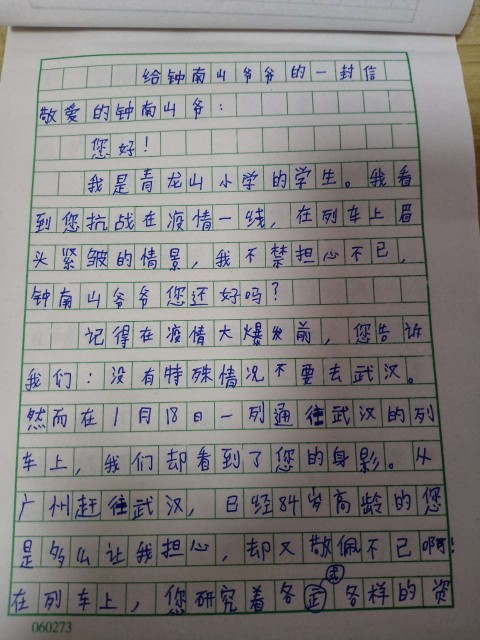 给钟南山爷爷的一封信
敬爱的钟南山爷:
您好!
我是青龙山小学的学生。我看
到您抗战在疫情一线,在列车上眉
头紧皱的情景,我不禁担心不已,
钟南山爷爷您还好吗?
记得在疫情大爆发前,您告诉
我们:没有特殊情况不要去武汉。
然而在1月18日一列通往武汉的列
车上,我们却看到了您的身影。从
广州赶往武汉,已经84岁高龄的您
是多么让我担心,却又敬佩不已啊!
志
在列车上,您研究着各武各样的资
060273